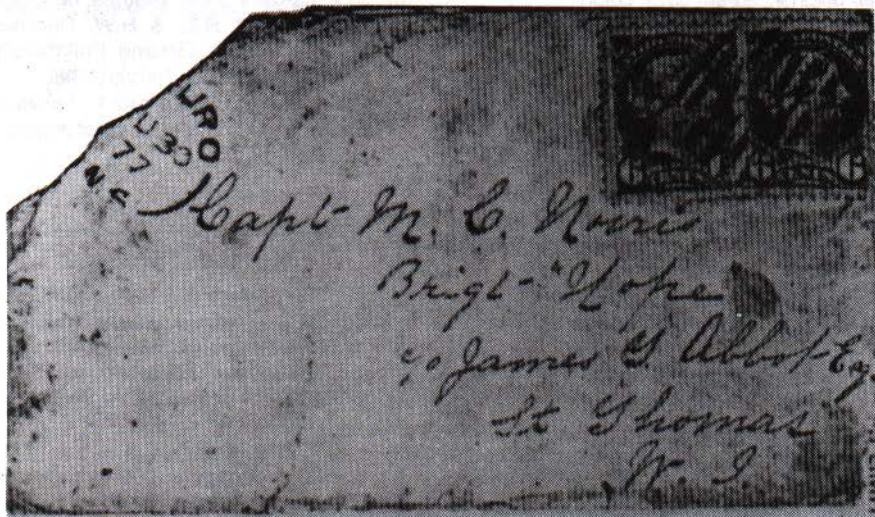 URO
U 30
77
N S
6 6 6 6
Capt M. C. Norris
Brigt "Hope"
c/o James G. Abbot Eq.
St Thomas
W. I.